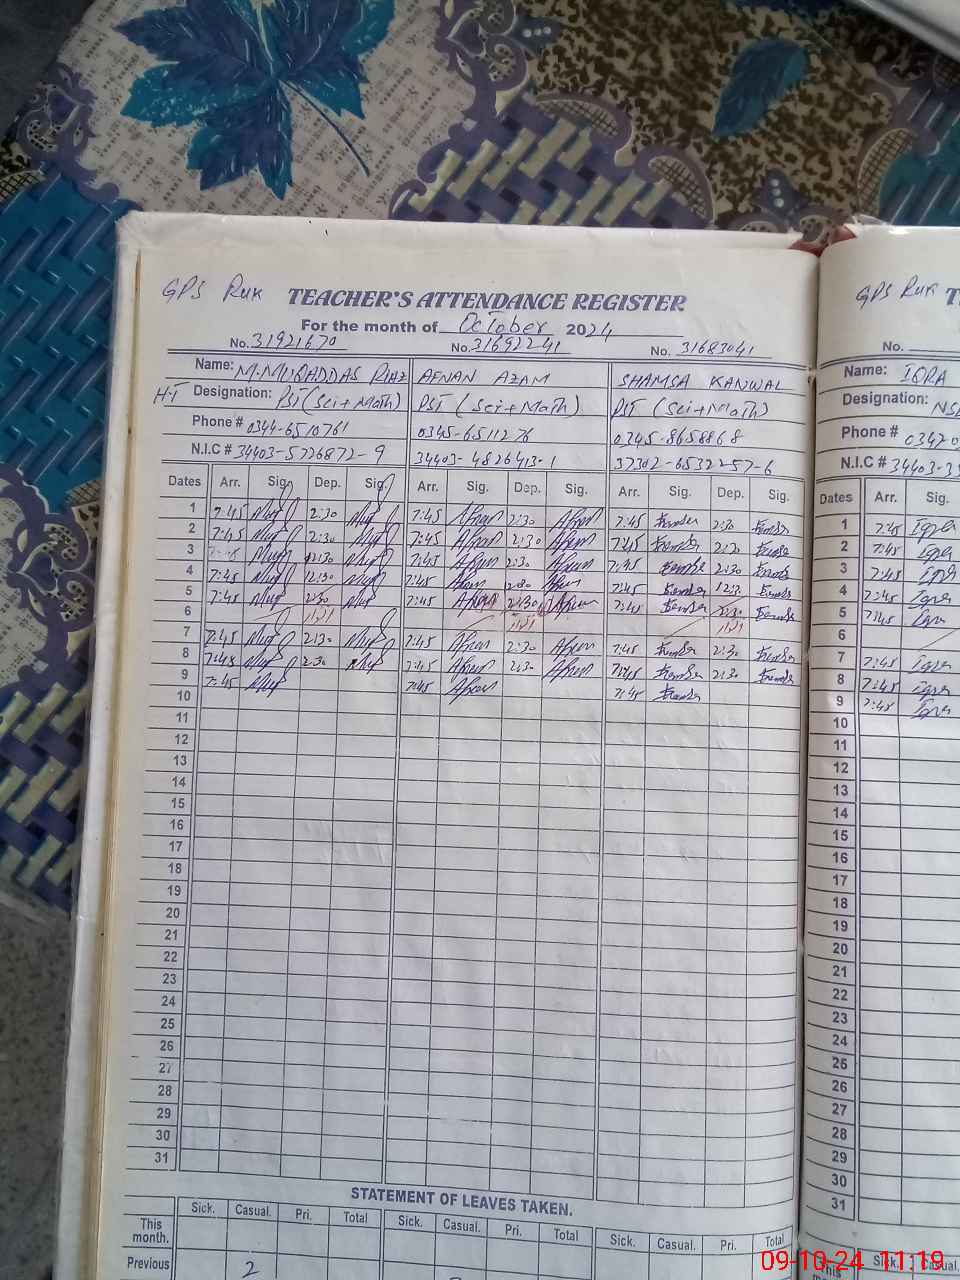 GPS Ruk TEACHER'S ATTENDANCE REGISTER
For the month of October 2024
No. 31921670 No. 31692241 No. 31683041
Name: M. MUQADDAS RIAZ AFNAN AZAM SHAMSA KANWAL
H.T Designation: PST (Sci+Math) PST (Sci+Math) PST (Sci+Math)
Phone # 0344-6510761 0345-6511276 0345-8658868
N.I.C # 34403-5726872-9 34403-4826413-1 37302-6532257-6
Dates Arr. Sig. Dep. Sig. Arr. Sig. Dep. Sig. Arr. Sig. Dep. Sig.
1 7:45 2:30 7:45 Afnan 2:30 Afnan 7:45 2:30
2 7:45 2:30 7:45 Afnan 2:30 Afnan 7:45 2:30
3 2:30 7:45 Afnan 2:30 Afnan 7:45 2:30
4 7:45 12:30 7:45 Afnan 12:30 Afnan 7:45 12:30
5 7:45 2:30 7:45 Afnan 2:30 Afnan 7:45 2:30
6 اتوار اتوار اتوار
7 7:45 2:30 7:45 Afnan 2:30 Afnan 7:45 2:30
8 7:45 2:30 7:45 Afnan 2:30 Afnan 7:45 2:30
9 7:45 7:45 Afnan 7:45
10
11
12
13
14
15
16
17
18
19
20
21
22
23
24
25
26
27
28
29
30
31
STATEMENT OF LEAVES TAKEN.
Sick. Casual. Pri. Total Sick. Casual. Pri. Total Sick. Casual. Pri. Total
This month.
Previous 2
GPS Ruk T
No.
Name: IQRA
Designation: NS
Phone # 0342
N.I.C # 34403-3
Dates Arr. Sig.
1 7:45 Iqra
2 7:45 Iqra
3 7:45 Iqra
4 7:45 Iqra
5 7:45 Iqra
6
7 7:45 Iqra
8 7:45 Iqra
9 7:45 Iqra
10
11
12
13
14
15
16
17
18
19
20
21
22
23
24
25
26
27
28
29
30
31
Sick.
This
09-10-24 11:19